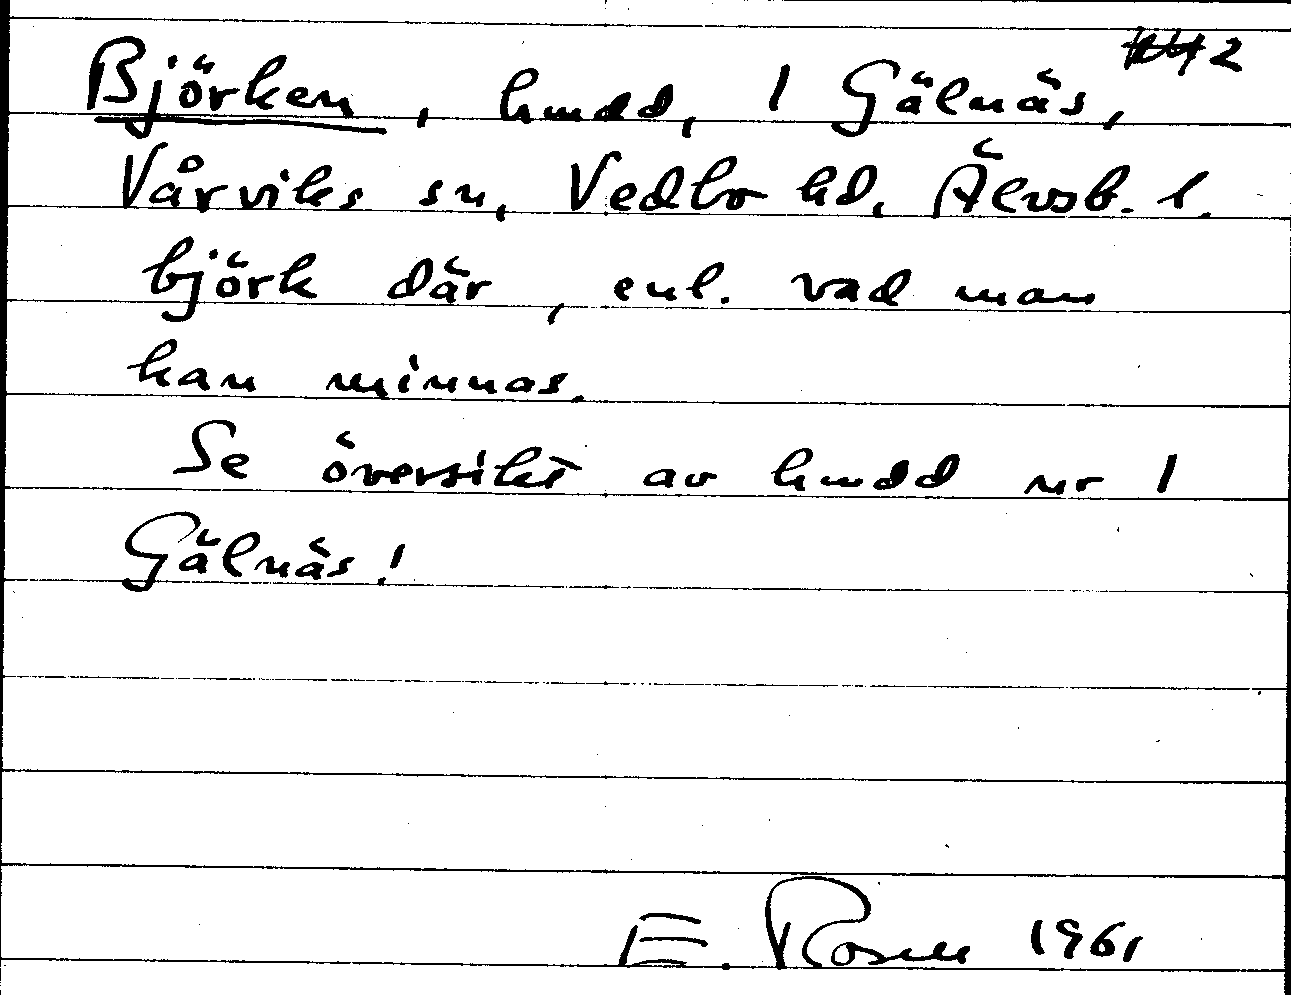 2
Björken, hmdd, 1 Gälnäs,
Vårviks sn, Vedbo hd. Älvsb. l.
björk där, enl. vad man
kan minnas.
Se översikt av hmdd nr 1
Gälnäs!
E. Rosen 1961